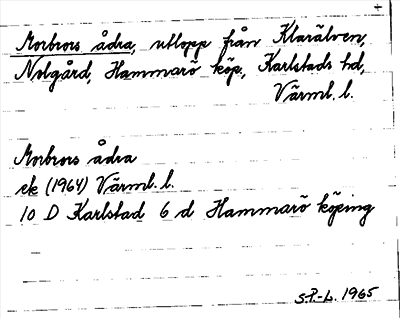 Morbrors ådra, utlopp från Klarälven,
Nolgård, Hammarö köp., Karlstads hd,
Värml. l.
Morbrors ådra
ek (1964) Värml. l.
10 D Karlstad 6 d Hammarö köping
S.P.-L. 1965